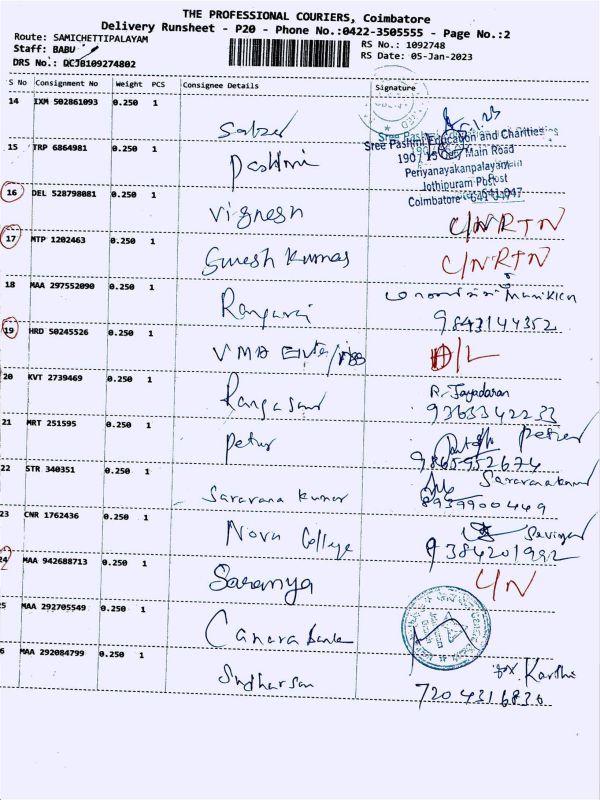 THE PROFESSIONAL COURIERS, Coimbatore
Delivery Runsheet - P20 - Phone No.:0422-3505555 - Page No.:2
Route: SAMICHETTIPALAYAM
Staff: BABU
RS No.: 1092748
DRS No.: QCJB109274802
RS Date: 05-Jan-2023
S No Consignment No Weight PCS Consignee Details Signature
14 IXM 502861093 0.250 1
15 TRP 6864981 0.250 1 Sree Pashmi Education and Charities
Main Road
Periyanayakanpalayam
Jothipuram Post
Coimbatore
16 DEL 528798081 0.250 1 Vignesh C/NRTN
17 MTP 1202463 0.250 1 Suresh Kumar C/NRTN
18 MAA 297552090 0.250 1
9843144352
19 HRD 50245526 0.250 1 VMA D/L
20 KVT 2739469 0.250 1 R. Jayadaran
9363342233
21 MRT 251595 0.250 1 Peter Peter
9865952674
22 STR 340351 0.250 1 Saravana Kumar Saravanakumar
8939900449
23 CNR 1762436 0.250 1 Nova College
9384201992
24 MAA 942688713 0.250 1 Saranya
5 MAA 292705549 0.250 1 Canara bank
6 MAA 292084799 0.250 1 Sudharsan Karthi
7204316836